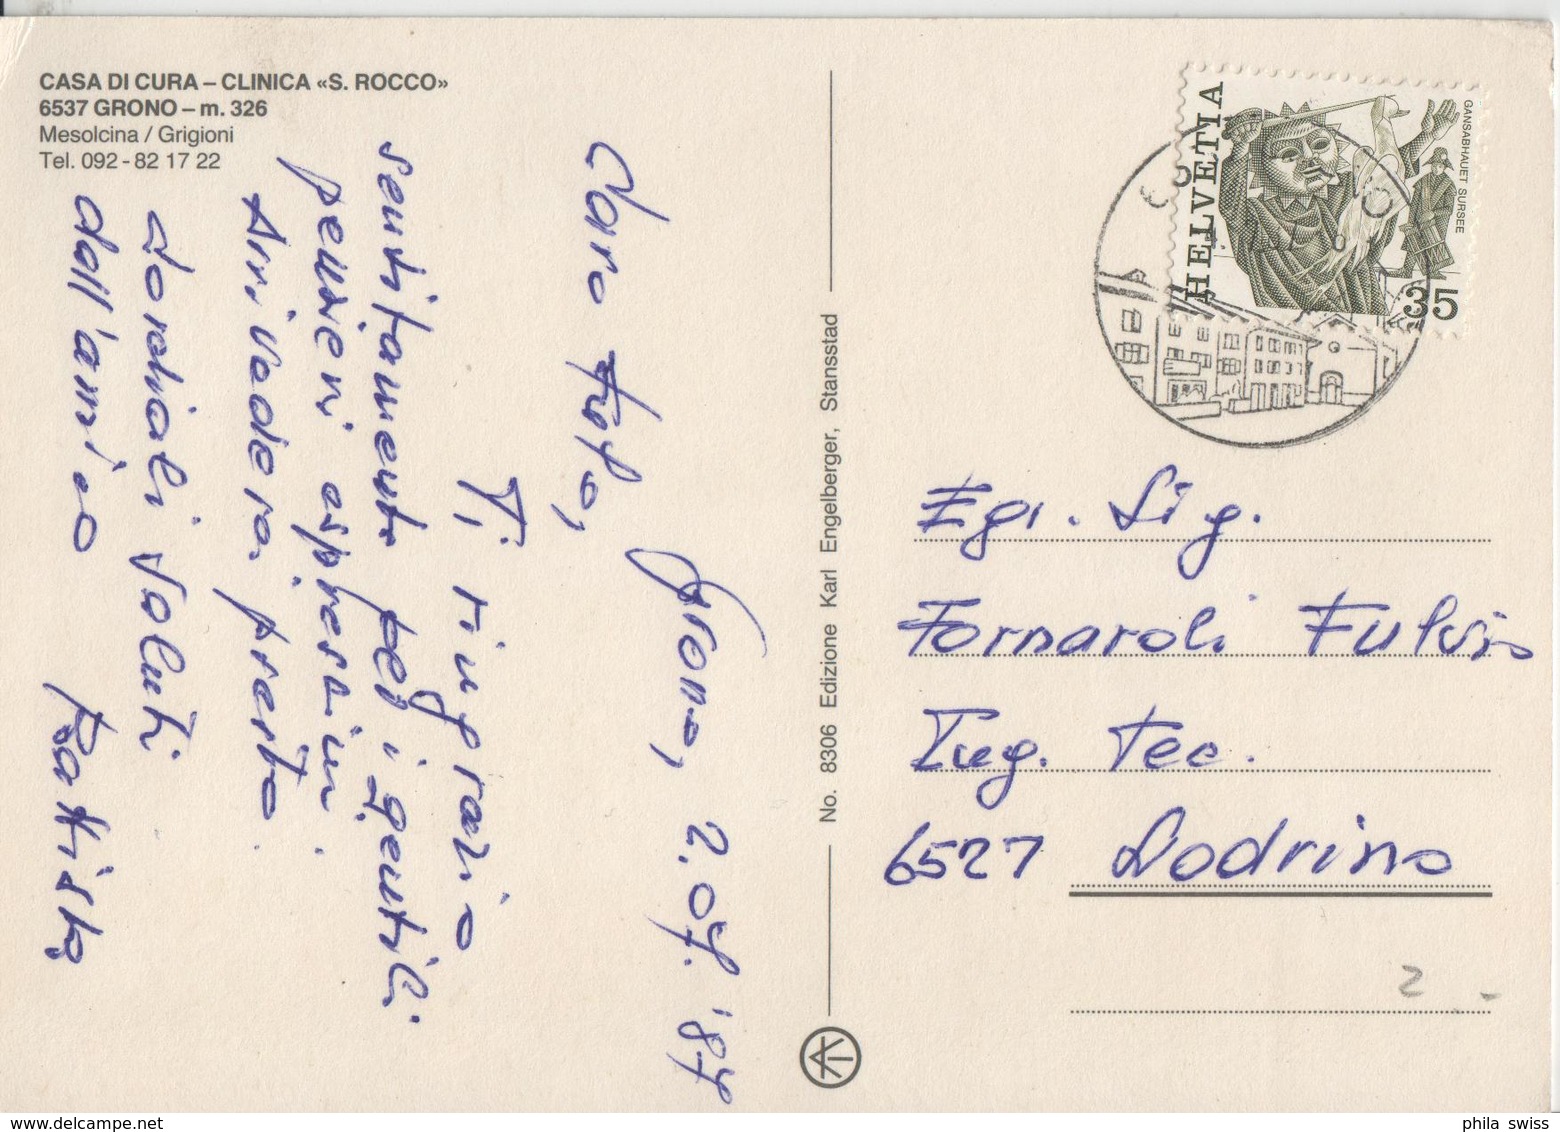 CASA DI CURA – CLINICA «S. ROCCO»
6537 GRONO – m. 326
Mesolcina / Grigioni
Tel. 092 - 82 17 22
Grono, 2.07.'87
Caro
Ti ringrazio
sentitamente per i gentili
pensieri espressimi.
Arrivederci presto.
Cordiali saluti
dall'amico Battista
No. 8306 Edizione Karl Engelberger, Stansstad
HELVETIA
GANSABHAUET SURSEE
35
Egr. Sig.
Fornaroli Fulvio
Ing. Tec.
6527 Lodrino
2 -
phila swiss